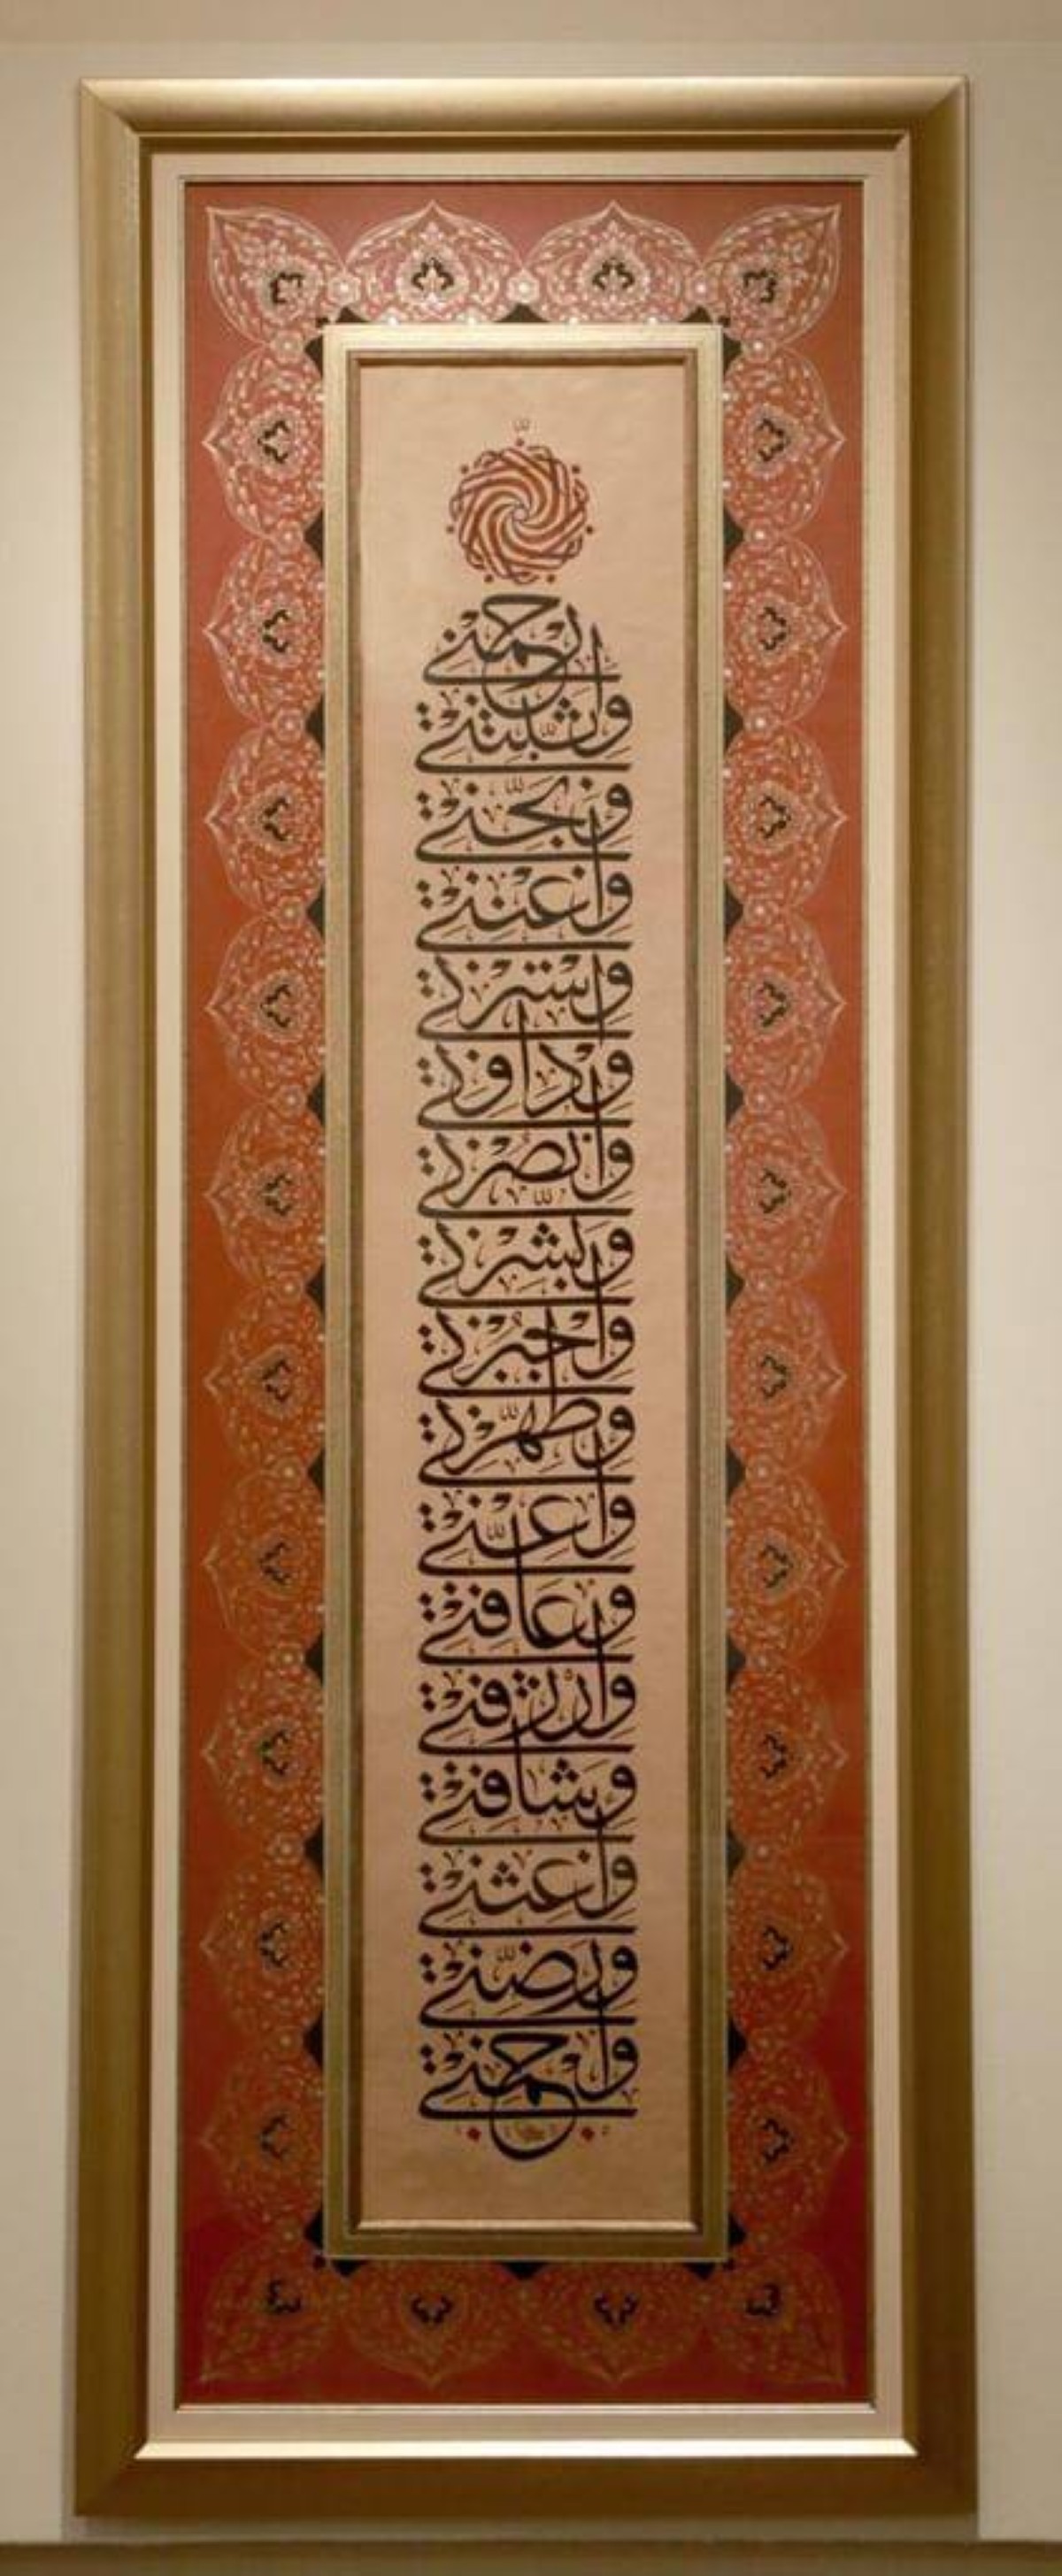 ارحمني
وثبتني
ونجني
واغنني
واسترني
وداوني
وانصرني
وبشرني
واجبرني
وطهرني
واعني
وعافني
وارزقني
وشافني
واغثني
ورضني
واحمني